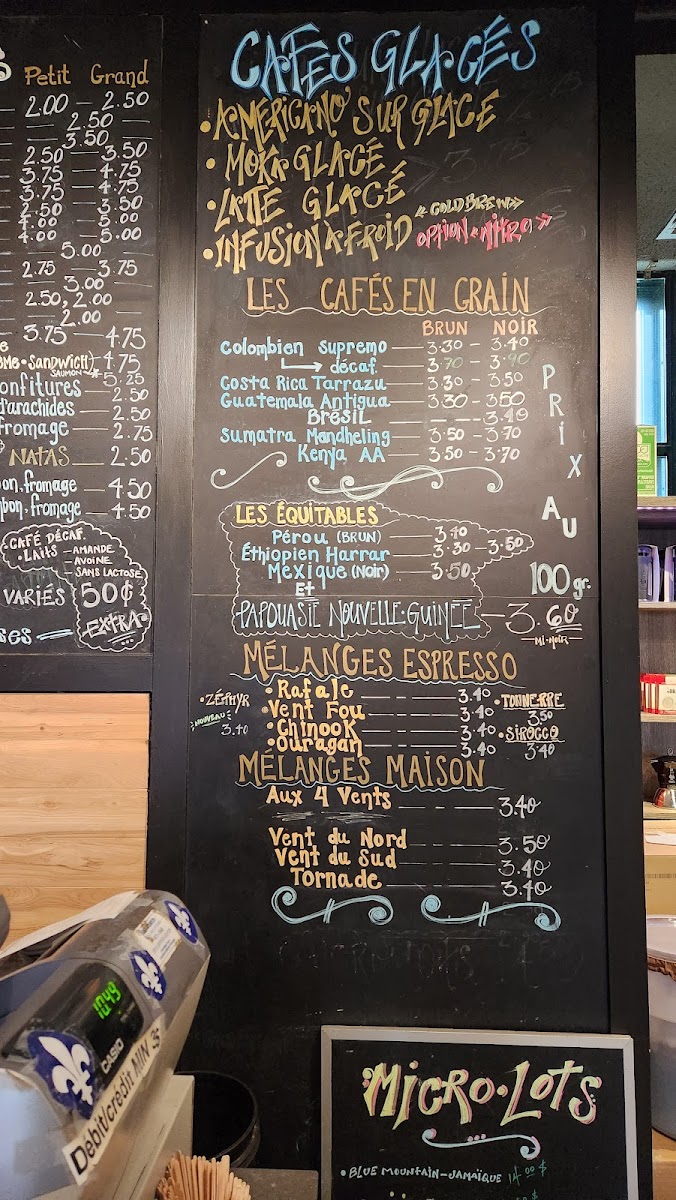 Petit Grand
2.00 — 2.50
2.50 —
3.50
2.50 — 3.50
3.75 — 4.75
3.75 — 4.75
2.50 — 3.50
4.00 — 5.00
4.00 — 5.00
5.00
2.75 — 3.75
3.00
2.50, 2.00
2.00
3.75 — 4.75
SANDWICH) 4.75
SAUMON 5.25
onfitures 2.50
d'arachides 2.50
fromage — 2.75
NATAS — 2.50
on, fromage — 4.50
bon, fromage — 4.50
CAFÉ DÉCAF.
• LAITS — AMANDE
AVOINE
SANS LACTOSE
VARIÉS 50¢
EXTRA
CAFÉS GLACÉS
• AMERICANO SUR GLACE
• MOKA GLACÉ
• LATTE GLACÉ
• INFUSION À FROID « COLD BREW »
OPTION • NITRO »
LES CAFÉS EN GRAIN
BRUN NOIR
Colombien Supremo — 3.30 - 3.40
décaf. — 3.70 - 3.90
Costa Rica Tarrazu — 3.30 - 3.50
Guatemala Antigua — 3.30 - 3.50
BRÉSIL — 3.40
Sumatra Mandheling — 3.50 - 3.70
Kenya AA — 3.50 - 3.70
PRIX AU
100 gr.
LES ÉQUITABLES
Pérou (BRUN) — 3.40
Éthiopien Harrar — 3.30 — 3.50
Mexique (Noir) — 3.50
ET
PAPOUASIE NOUVELLE-GUINÉE — 3.60
MI-NOIR
MÉLANGES ESPRESSO
• ZÉPHYR
NOUVEAU
3.40
• Rafale — 3.40
• Vent Fou — 3.40
• Chinook — 3.40
• Ouragan — 3.40
• TONNERRE
3.50
• SIROCCO
3.40
MÉLANGES MAISON
Aux 4 Vents — 3.40
Vent du Nord — 3.50
Vent du Sud — 3.40
Tornade — 3.40
10:49
CASIO
Débit/crédit MIN 3$
MICRO•LOTS
• BLUE MOUNTAIN-JAMAÏQUE 14.00 $